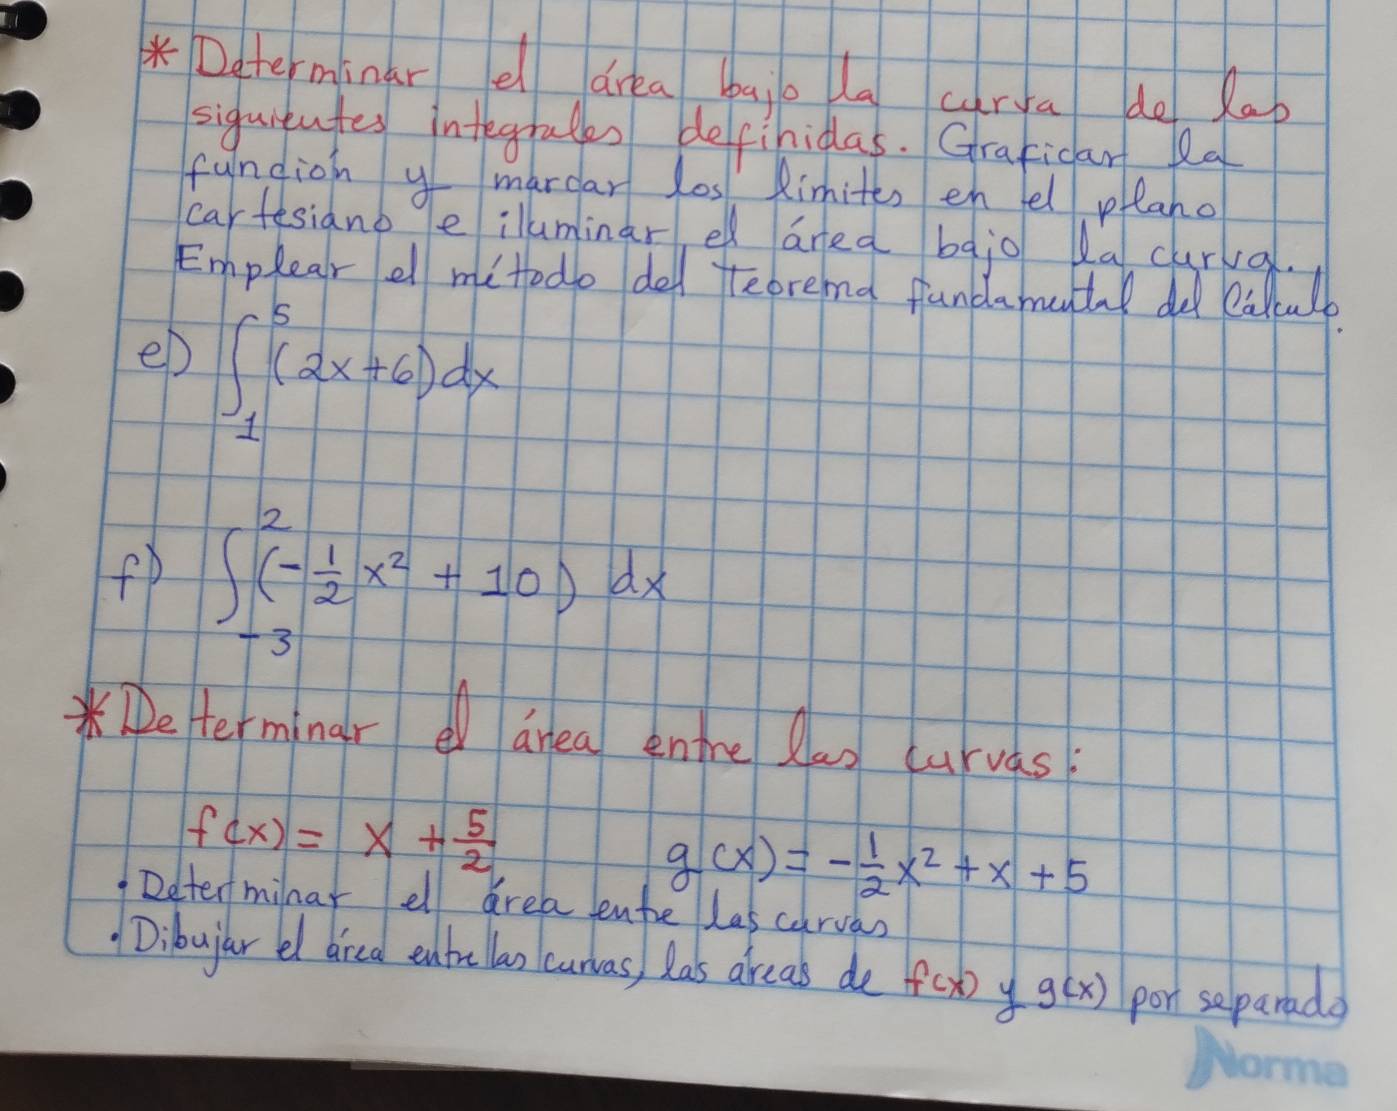 * Determinar el área bajo la curva de las
siguientes integrales definidas. Graficar la
función y marcar los límites en el plano
cartesiano e iluminar el área bajo la curva.
Emplear el método del Teorema fundamental del Cálculo.
e) ∫₁⁵ (2x+6)dx
f) ∫₋₃² (-1/2 x² + 10) dx
* Determinar el área entre las curvas:
f(x) = x + 5/2 g(x) = -1/2 x² + x + 5
• Determinar el área entre las curvas
• Dibujar el área entre las curvas, las áreas de f(x) y g(x) por separado
Norma